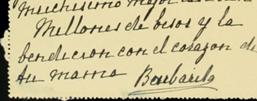 muchisimo mejor
Millones de besos y la
bendicion con el corazon de
tu mama